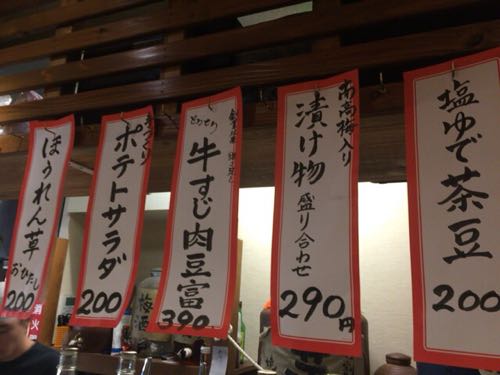 塩ゆで茶豆
200
南高梅入り
漬け物盛り合わせ
290円
とろとろ
牛すじ肉豆富
390
手づくり
ポテトサラダ
200
ほうれん草
おひたし
200
梅酒
消火